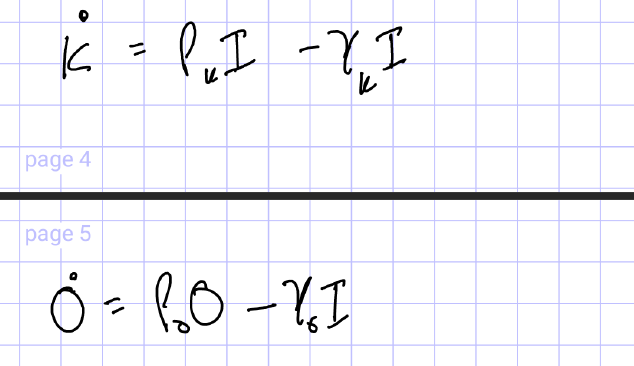 K̇ = ρ_K I − γ_K I
page 4
page 5
Ȯ = ρ_o O − γ_o I